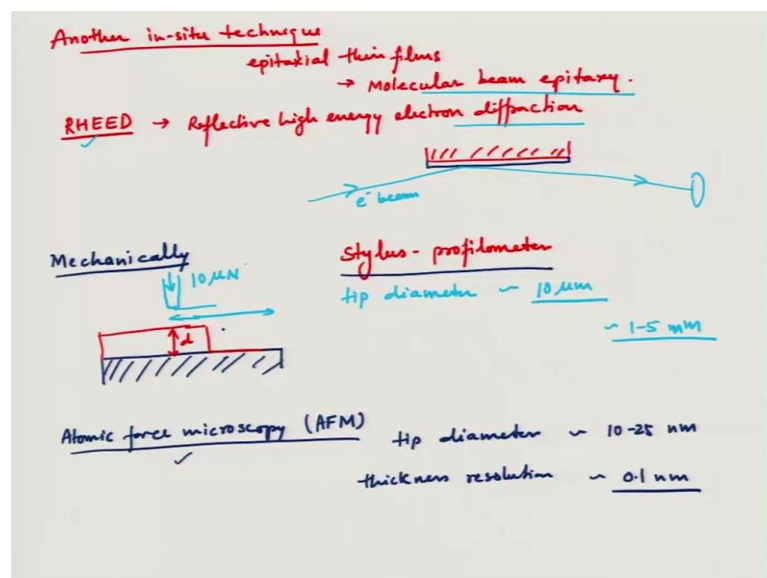 Another in-situ technique
epitaxial thin films
→ Molecular beam epitaxy.
RHEED → Reflective high energy electron diffraction
e⁻ beam
Mechanically
Stylus - profilometer
10 μN
tip diameter ~ 10 μm
d
~ 1-5 mm
Atomic force microscopy (AFM)
tip diameter ~ 10-25 nm
thickness resolution ~ 0.1 nm